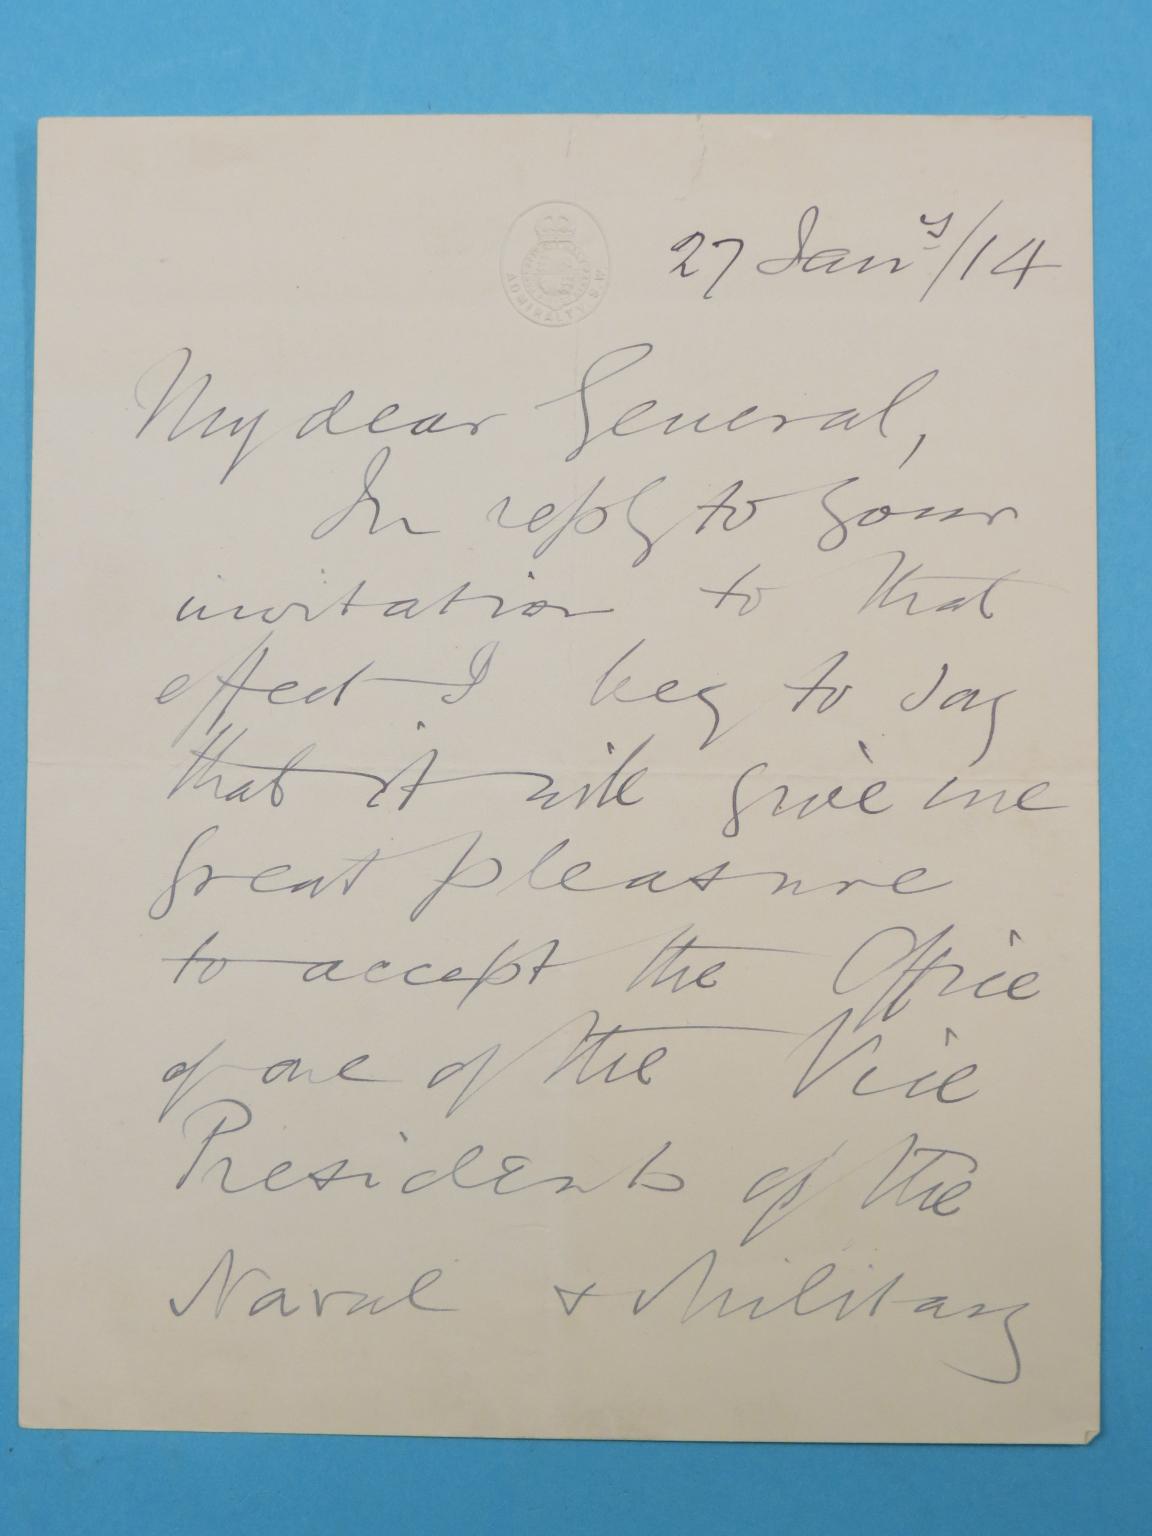 ADMIRALTY S.W.
27 Jany/14
My dear General,
In reply to your
invitation to that
effect I beg to say
that it will give me
great pleasure
to accept the Office
of one of the Vice
Presidents of the
Naval & Military